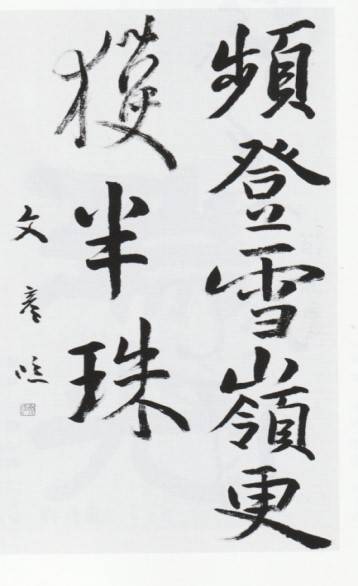 頻登雪嶺更
獲半珠
文